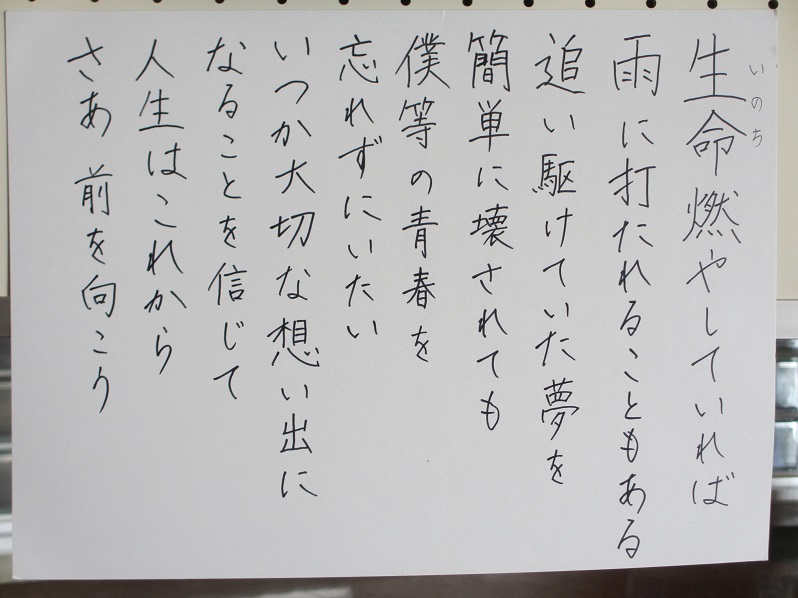 生命燃やしていれば
いのち
雨に打たれることもある
追い駆けていた夢を
簡単に壊されても
僕等の青春を
忘れずにいたい
いつか大切な想い出に
なることを信じて
人生はこれから
さあ 前を向こう